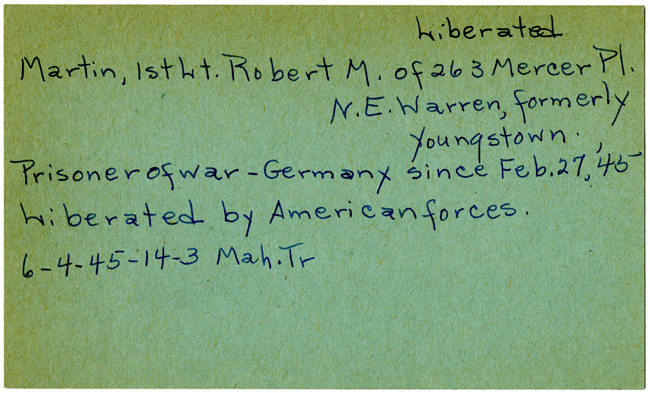 Liberated
Martin, 1st Lt. Robert M. of 263 Mercer Pl.
N.E. Warren, formerly
Youngstown.
Prisoner of war - Germany since Feb. 27, '45
Liberated by American forces.
6-4-45-14-3 Mah. Tr